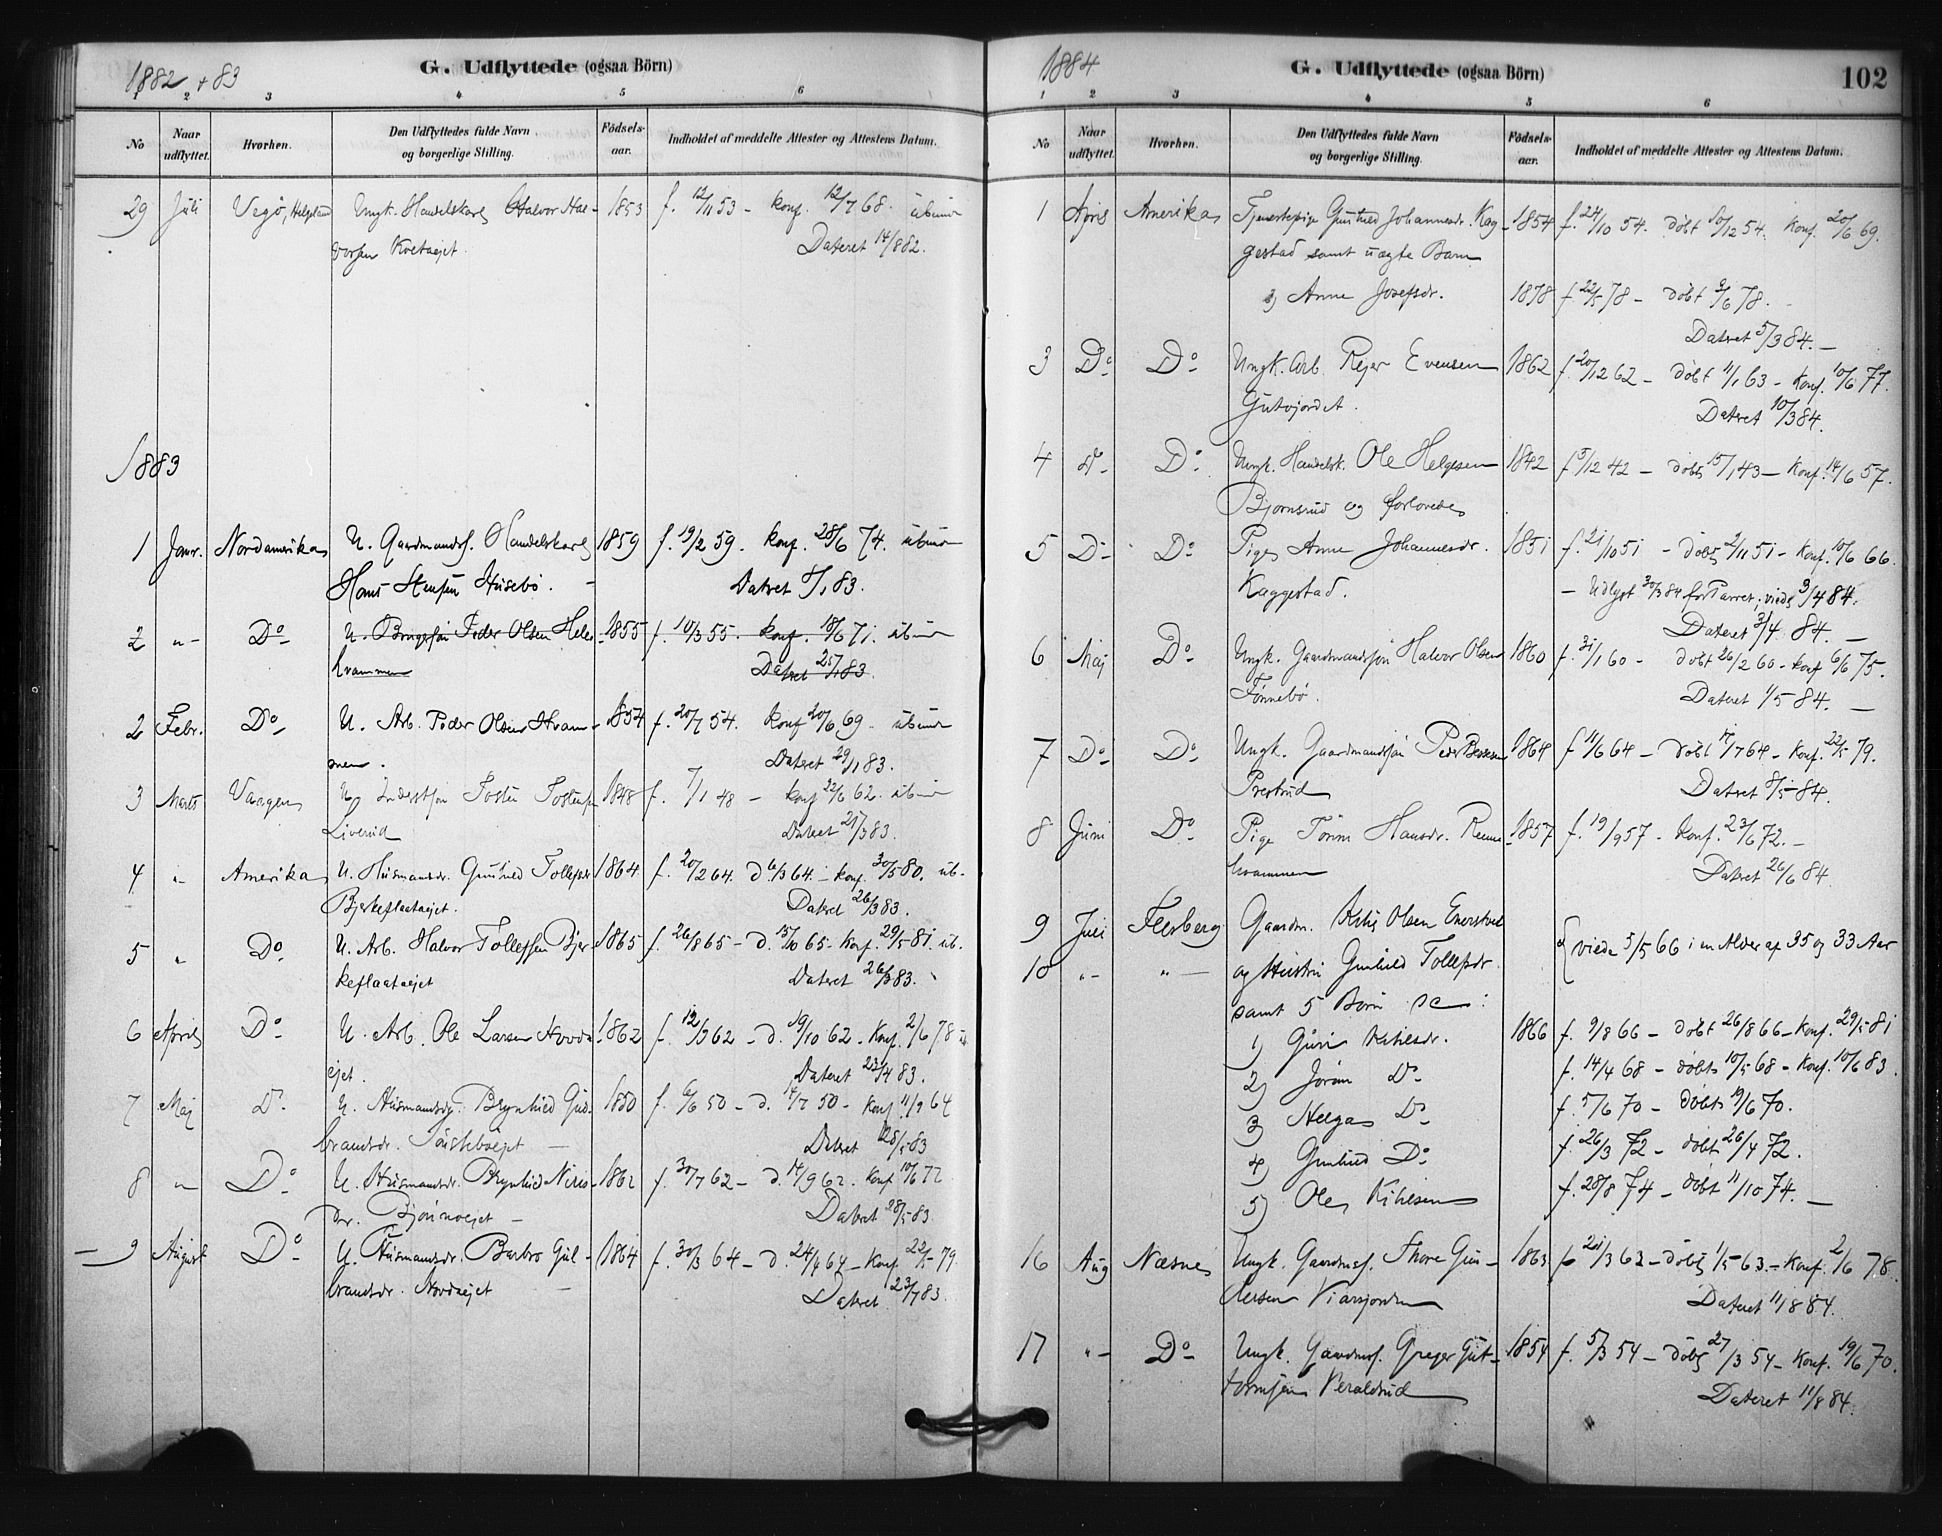 1882 + 83
G. Udflyttede (ogsaa Börn)
1 2 3 4 5 6
No
Naar udflyttet.
Hvorhen.
Den Udflyttedes fulde Navn og borgerlige Stilling.
Fødsels-aar.
Indholdet af meddelte Attester og Attestens Datum.
29 Juli Vegö, Helgeland Ungk. Handelskarl Halvor Hal- 1853 f. 12/11 53 - konf. 12/7 68. ubund
vorsen Kvetaejet. Dateret 14/8 82.
1883
1 Janr. Nordamerika U. Gaardmands. Handelskarl 1859 f. 19/2 59. konf. 28/6 74. ubund
Hans Stensen Husebö. - Datret /1 83.
2 " - Do U. Brugersön Peder Olsen Hele- 1855 f. 10/3 55. konf. 18/6 71. ubund
hrammen Datret 25/1 83.
2 Febr. Do U. Arb. Peder Olsen Hram- 1854 f. 20/7 54. konf 20/6 69. ubund
men. Datret 29/1 83.
3 Marts Vangen U. Sosten Sostensen 1848 f. 7/1 48 - konf 22/6 62. ubund
Liverud Datret 21/3 83.
4 " Amerika U. Husmandsdr. Gunhild Tollefsdr 1864 f. 20/2 64. d. /3 64. - konf. 30/5 80. ub.
Bjerkeflaataejet. Datret 26/3 83.
5 " Do U. Arb. Halvor Tollefsen Bjer- 1865 f. 26/8 65 - d. 15/10 65 - konf. 29/5 81. ub.
keflaataejet Dateret 26/3 83.
6 April Do U. Arb. Ole Larsen Hovda- 1862 f. 12/ 62 - d. 19/10 62 - konf. 2/6 78 u.
ejet. Dateret 22/4 83.
7 Maj Do U. Husmandsdr. Brynhild Gul- 1850 f. 6/6 50 - d. 14/7 50 - konf 11/9 64
brandsdr. - Datret 28/5 83
8 " Do U. Husmandsdr. Brynhild Nils- 1862 f. 30/7 62 - d. 14/9 62. konf 10/6 77
dr. - Datret 28/5 83.
9 August Do U. Husmandsdr. Barbro Gul- 1864 f. 30/3 64 - d. 24/4 64 - konf 22/5 79
brandsdr. Nordaejet - Datret 23/7 83.
1884
G. Udflyttede (ogsaa Börn)
102
1 2 3 4 5 6
No
Naar udflyttet.
Hvorhen.
Den Udflyttedes fulde Navn og borgerlige Stilling.
Fødsels-aar.
Indholdet af meddelte Attester og Attestens Datum.
1 April Amerika Tjenestepige Gunhild Johannesdr. Kag- 1854 f. 24/10 54. döbt 10/12 54. konf. 20/6 69.
gestad samt uægte Barn
2) Anne Josefsdr. 1878 f. 22/5 78 - döbt 9/6 78.
Datret 5/3 84. -
3 Do Do Ungk. Arb. Rejer Evensen 1862 f. 20/12 62 - döbt 11/1 63 - konf. 10/6 77.
Gutvjordet. Datret 10/3 84.
4 Do Do Ungk. Handelsk. Ole Helgesen 1842 f 5/12 42 - döbt 15/1 43 - konf. 14/6 57.
Bjornsrud og forlovede
5 Do Do Pige Anne Johannesdr. 1851 f. 21/10 51 - döbt 2/11 51 - konf. 10/6 66.
Kaggestad. - Udlyst 30/3 84 for Parret; viede 3/4 84.
Dateret 3/4 84. -
6 Maj Do Ungk. Gaardmandssön Halvor Olsen 1860 f. 31/1 60 - döbt 26/2 60 - konf 6/6 75.
Tönnebö. Dateret 1/5 84. -
7 Do Do Ungk. Gaardmandssön Peder 1864 f 11/6 64 - döbt 17/7 64 - konf. 22/5 79.
Prestrud Datret 8/5 84.
8 Juni Do Pige Hansdr. 1857 f. 19/9 57 - konf. 23/6 72. -
hrammen Datret 26/6 84.
9 Juli Flesberg Gaardm. Kittil Olsen
10 " - " - og Hustru Gunhild Tollefsdr { viede 5/5 66 i en Alder af 35 og 33 Aar
samt 5 Börn sc:
1) Guri Kitilsdr. 1866 f. 9/8 66 - döbt 26/8 66 - konf. 29/5 81
2) Jöran Do f. 14/4 68 - döbt 10/5 68 - konf. 10/6 83.
3) Helga Do f. 5/6 70 - döbt 19/6 70.
4) Gunhild Do f. 26/3 72 - döbt 26/4 72.
5) Ole Kitilsen f. 28/8 74 - döbt 11/10 74. -
16 Aug Næsne Ungk. Gaardmsf. Thore Gun- 1863 f. 21/3 63 - döbt 1/5 63. - konf. 2/6 78.
dersen Dateret 11/8 84.
17 " - Do Ungk. Gaardmsf. Greger Gut- 1854 f. 5/3 54 - döbt 27/3 54 - konf. 19/6 70.
tormsen Veraldrud Dateret 11/8 84.